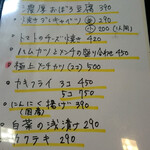 濃厚おぼろ豆腐 390
焼き 290
200 (1人用)
トマトのチーズ焼き 420
ハムカツとメンチの盛り合わせ 450
極上メンチカツ (2コ) 500
カキフライ 3コ 450
5コ 750
にんにく揚げ 390
白菜の浅漬け 290
カクテキ 290